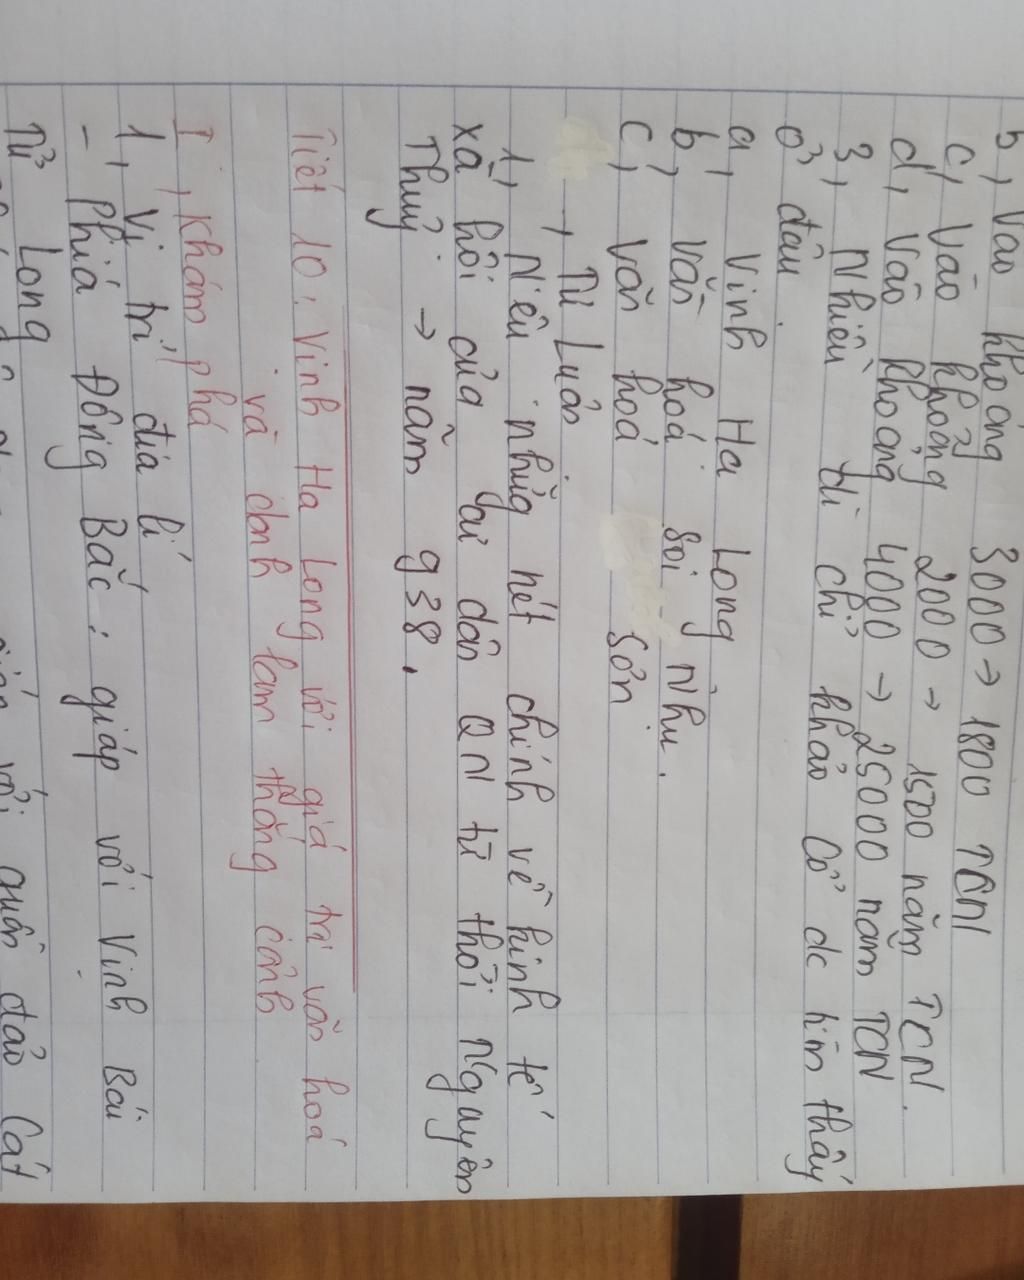 b, Vào khoảng 3000 → 1800 TCN
c, Vào khoảng 2000 → 1500 năm TCN.
d, Vào khoảng 4000 → 25000 năm TCN
3, Nhiều di chỉ khảo cổ dc tìm thấy
ở đâu
a, Vinh Hạ Long
b, văn hoá Soi Nhụ.
c, văn hoá Sơn
, Tự Luận
1, Nêu những nét chính về kinh tế
xã hội của cư dân QN từ thời Nguyên
Thuỷ → năm 938.
Tiết 10: Vinh Hạ Long với giá trị văn hoá
và danh lam thắng cảnh
I, Khám phá
1, Vị trí địa lí
- Phiá Đông Bắc: giáp với Vinh Bái
Tử Long
với quần đảo Cát